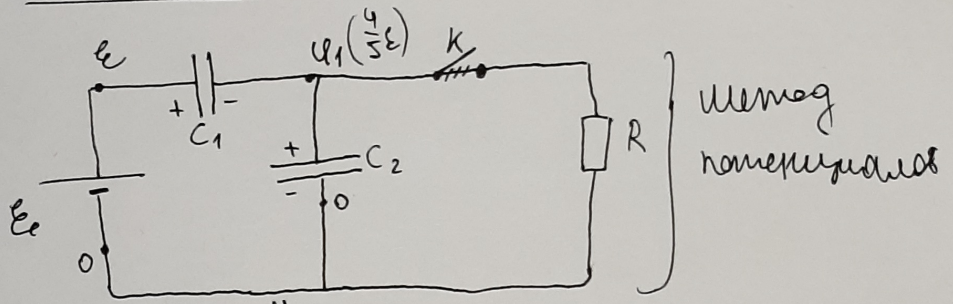 ℰ
φ₁(4/5 ℰ)
K
+ -
C₁
+
C₂
-
0
R
ℰ
0
Метод
потенциалов